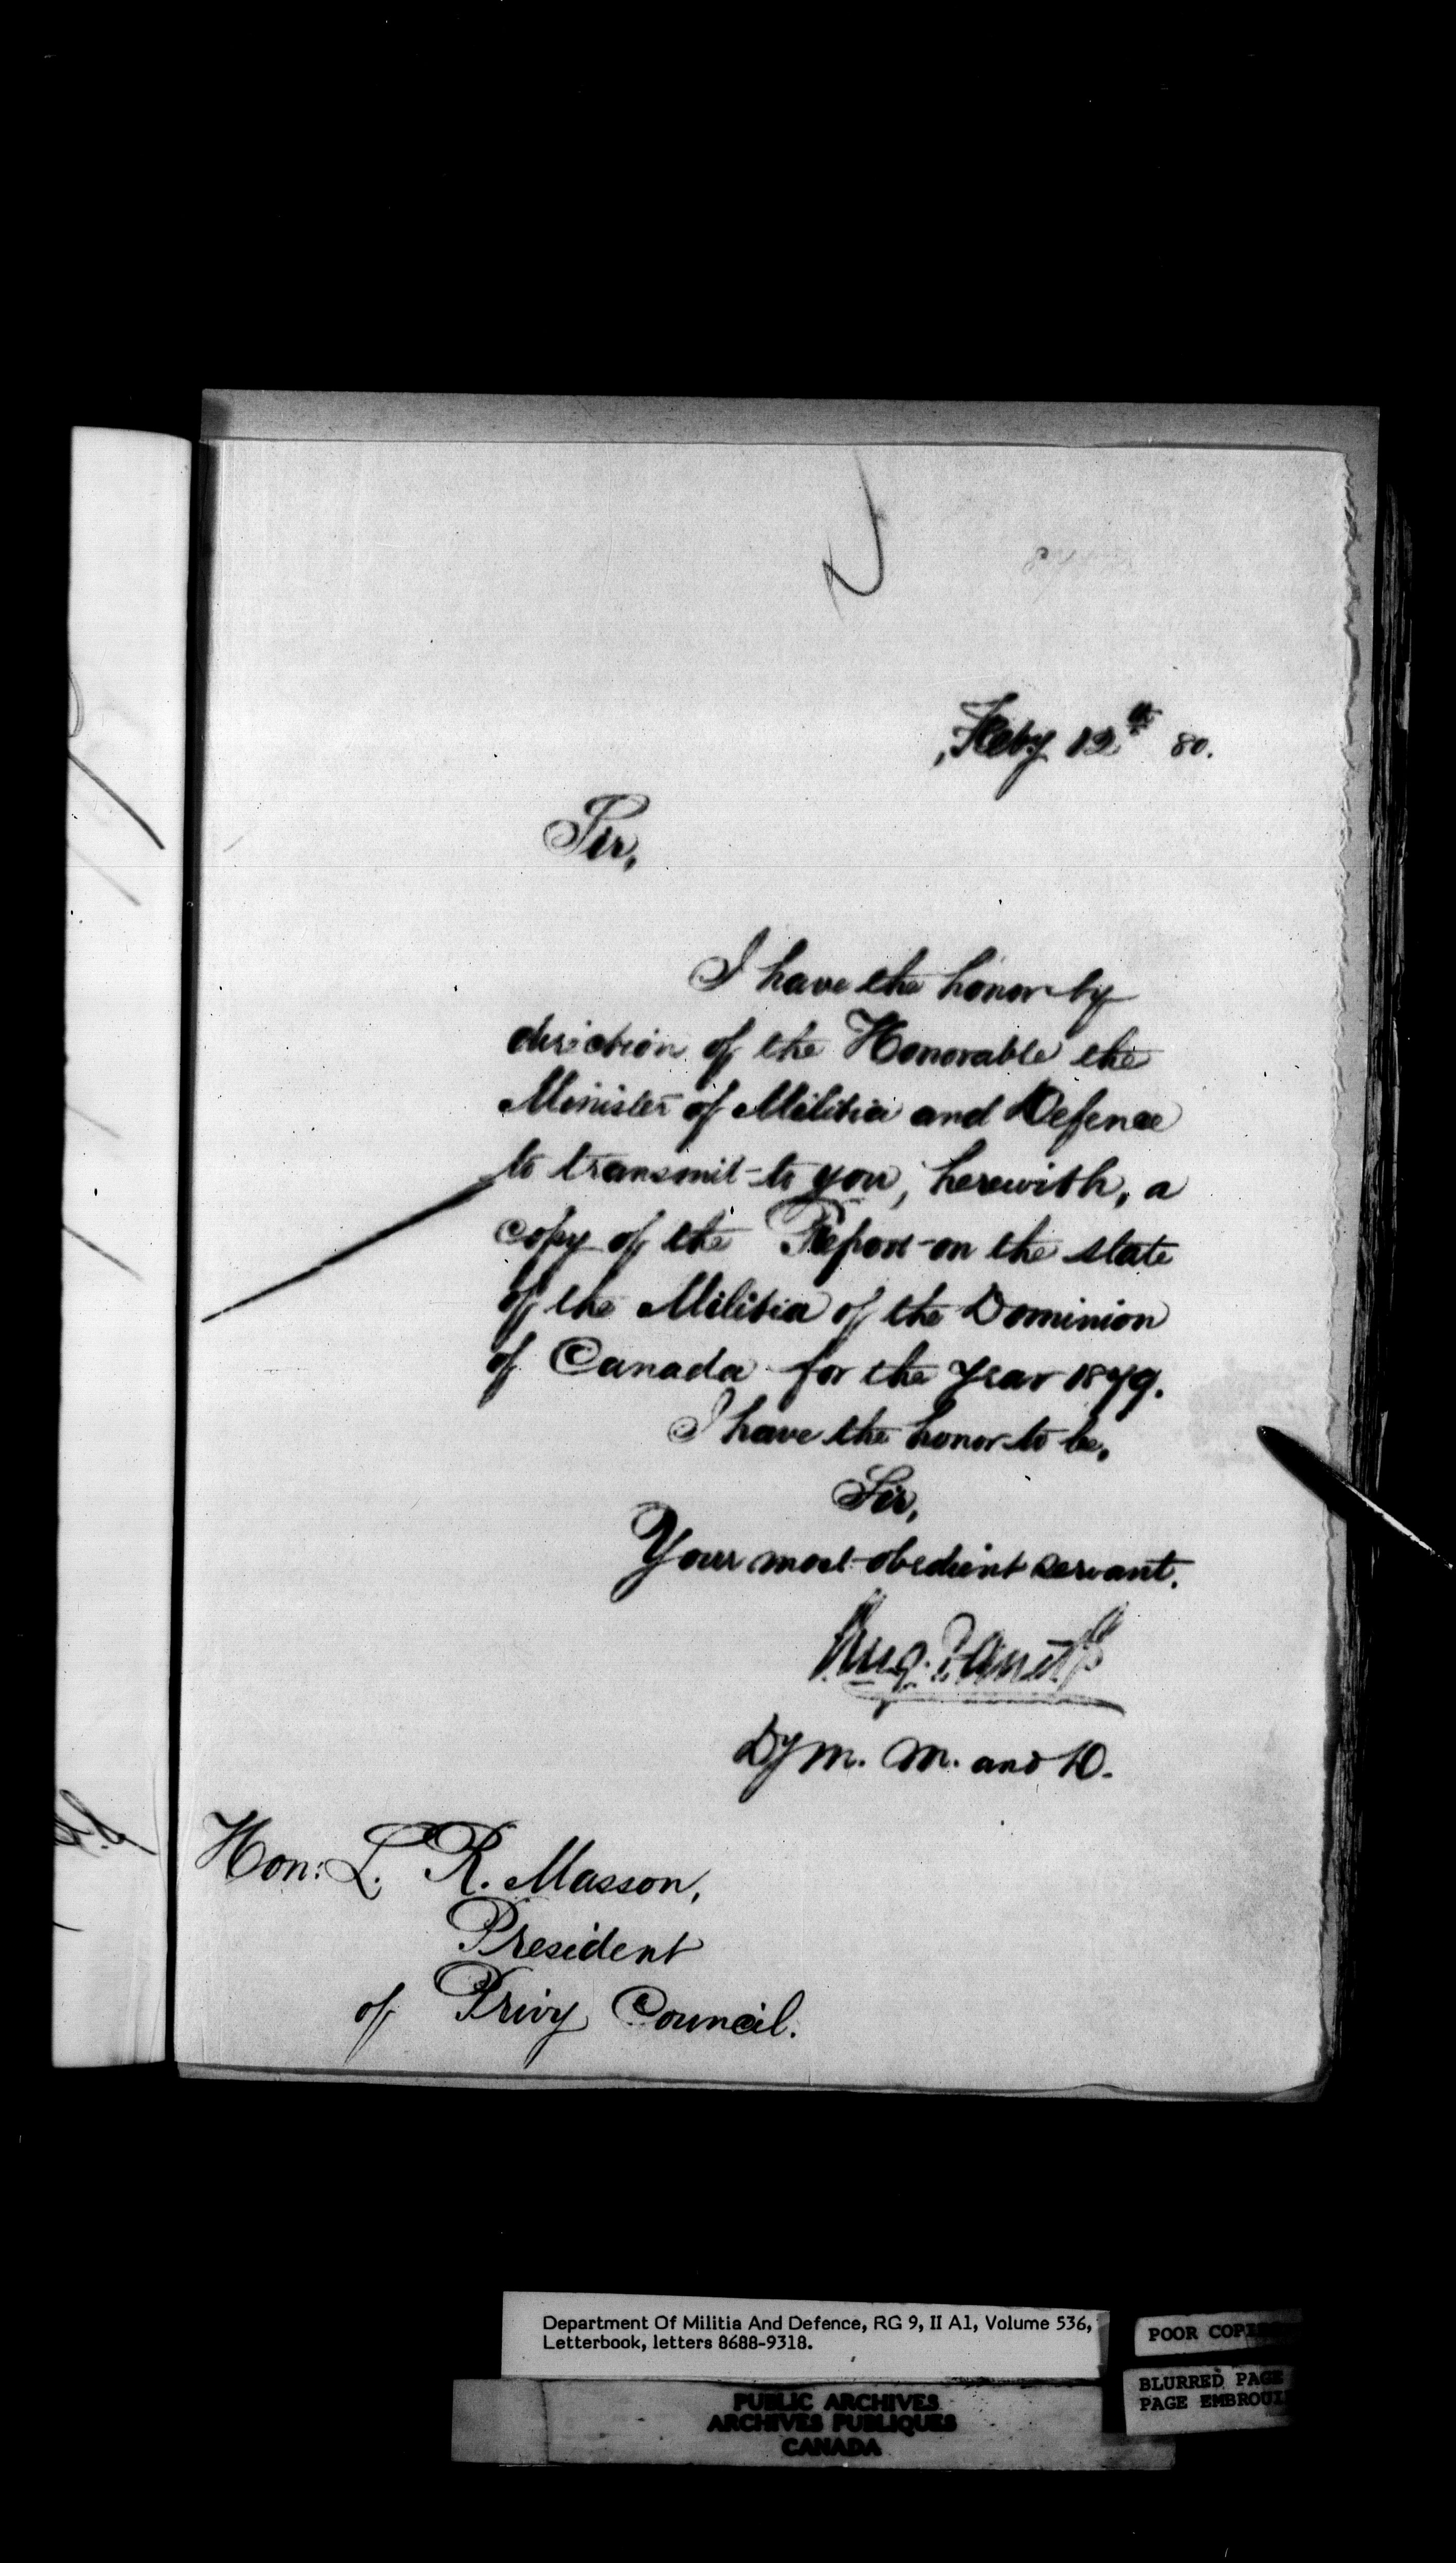 Feby 12th 80.
Sir,
I have the honor by
direction of the Honorable the
Minister of Militia and Defence
to transmit to you, herewith, a
copy of the Report on the state
of the Militia of the Dominion
of Canada for the Year 1879.
I have the honor to be,
Sir,
Your most obedient servant.
Aug. Panet
Dy M. M. and D.
Hon: L. R. Masson,
President
of Privy Council.
Department Of Militia And Defence, RG 9, II A1, Volume 536,
Letterbook, letters 8688-9318.
POOR COPI
BLURRED PAGE
PAGE EMBROUI
PUBLIC ARCHIVES
ARCHIVES PUBLIQUES
CANADA